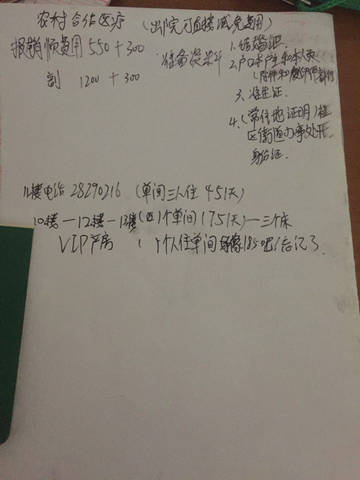 农村合作医疗 (出院可直接减免费用)
报销顺费用 550+300
剖 1200+300
准备资料
1.结婚证.
2.户口本户主和本人页
3.准生证.
4.(常住地证明)社
区街道办事处开
身份证.
11楼电话 28290216 (单间三人住 45/天)
10楼—12楼—13楼 (1个单间 (75/天)—三个床
VIP产房 (1个人住单间好像185吧(忘记了